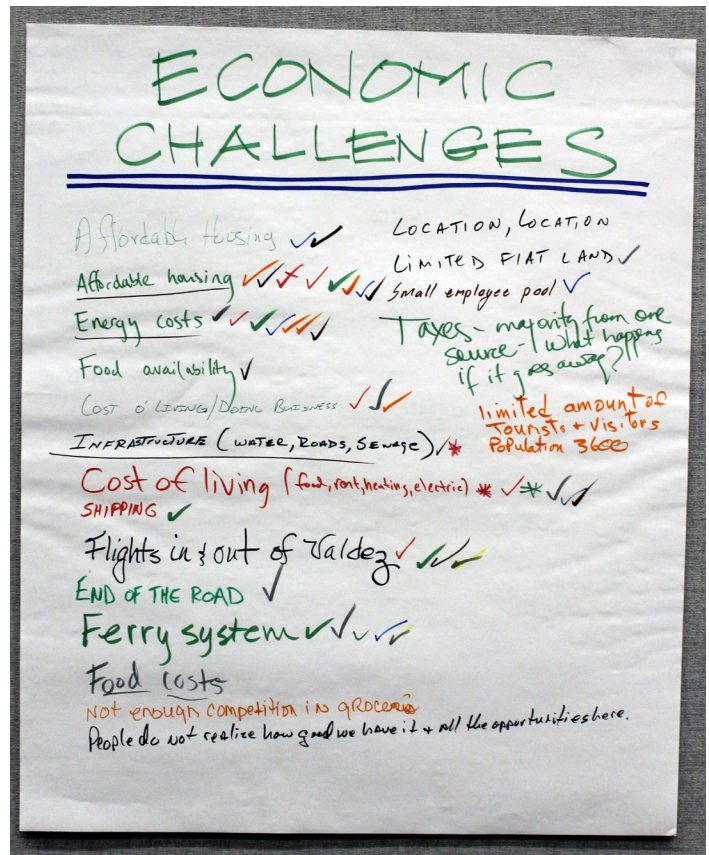 ECONOMIC
CHALLENGES
Affordable Housing
Affordable housing
Energy costs
Food availability
COST O' LIVING/DOING BUISNESS
INFRASTRUCTURE (WATER, ROADS, SEWAGE)
Cost of living (food, rent, heating, electric)
SHIPPING
Flights in & out of Valdez
END OF THE ROAD
Ferry system
Food costs
NOT enough competition in groceries
People do not realize how good we have it + all the opportunities here.
LOCATION, LOCATION
LIMITED FLAT LAND
Small employee pool
Taxes - majority from one
source - what happens
if it goes away?
limited amount of
Tourists + Visitors
Population 3600